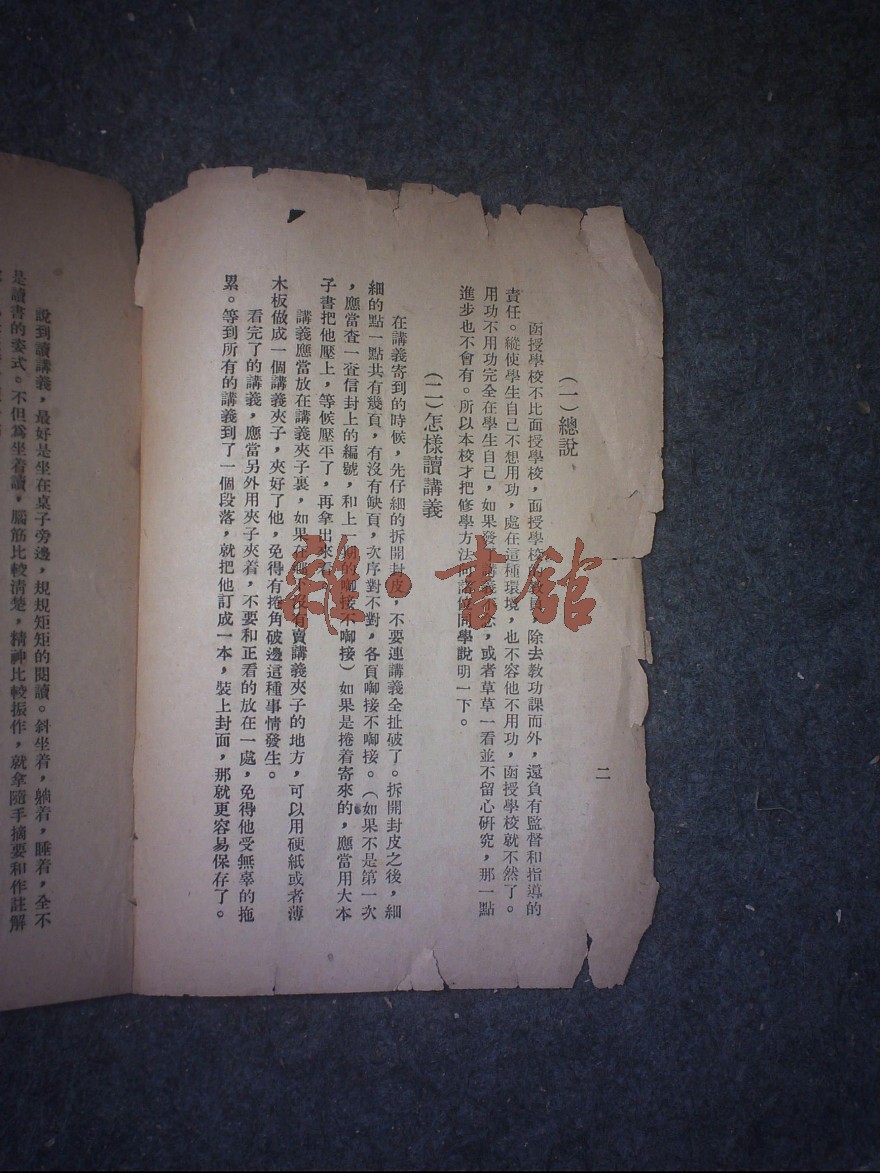 二
(一)總說
函授學校不比面授學校,面授學校的教員,除去教功課而外,還負有監督和指導的
責任。縱使學生自己不想用功,處在這種環境,也不容他不用功,函授學校就不然了。
用功不用功完全在學生自己,如果發了講義不念,或者草草一看並不留心研究,那一點
進步也不會有。所以本校才把修學方法向諸位同學說明一下。
(二)怎樣讀講義
在講義寄到的時候,先仔細的拆開封皮,不要連講義全扯破了。拆開封皮之後,細
細的點一點共有幾頁,有沒有缺頁,次序對不對,各頁啣接不啣接。(如果不是第一次
,應當查一查信封上的編號,和上一期的啣接不啣接)如果是捲着寄來的,應當用大本
子書把他壓上,等候壓平了,再拿出來看。
講義應當放在講義夾子裏,如果在沒有賣講義夾子的地方,可以用硬紙或者薄
木板做成一個講義夾子,夾好了他,免得有捲角破邊這種事情發生。
看完了的講義,應當另外用夾子夾着,不要和正看的放在一處,免得他受無辜的拖
累。等到所有的講義到了一個段落,就把他訂成一本,裝上封面,那就更容易保存了。
說到讀講義,最好是坐在桌子旁邊,規規矩矩的閱讀。斜坐着,躺着,睡着,全不
是讀書的姿式。不但爲坐着讀,腦筋比較清楚,精神比較振作,就拿隨手摘要和作註解
雜·書館